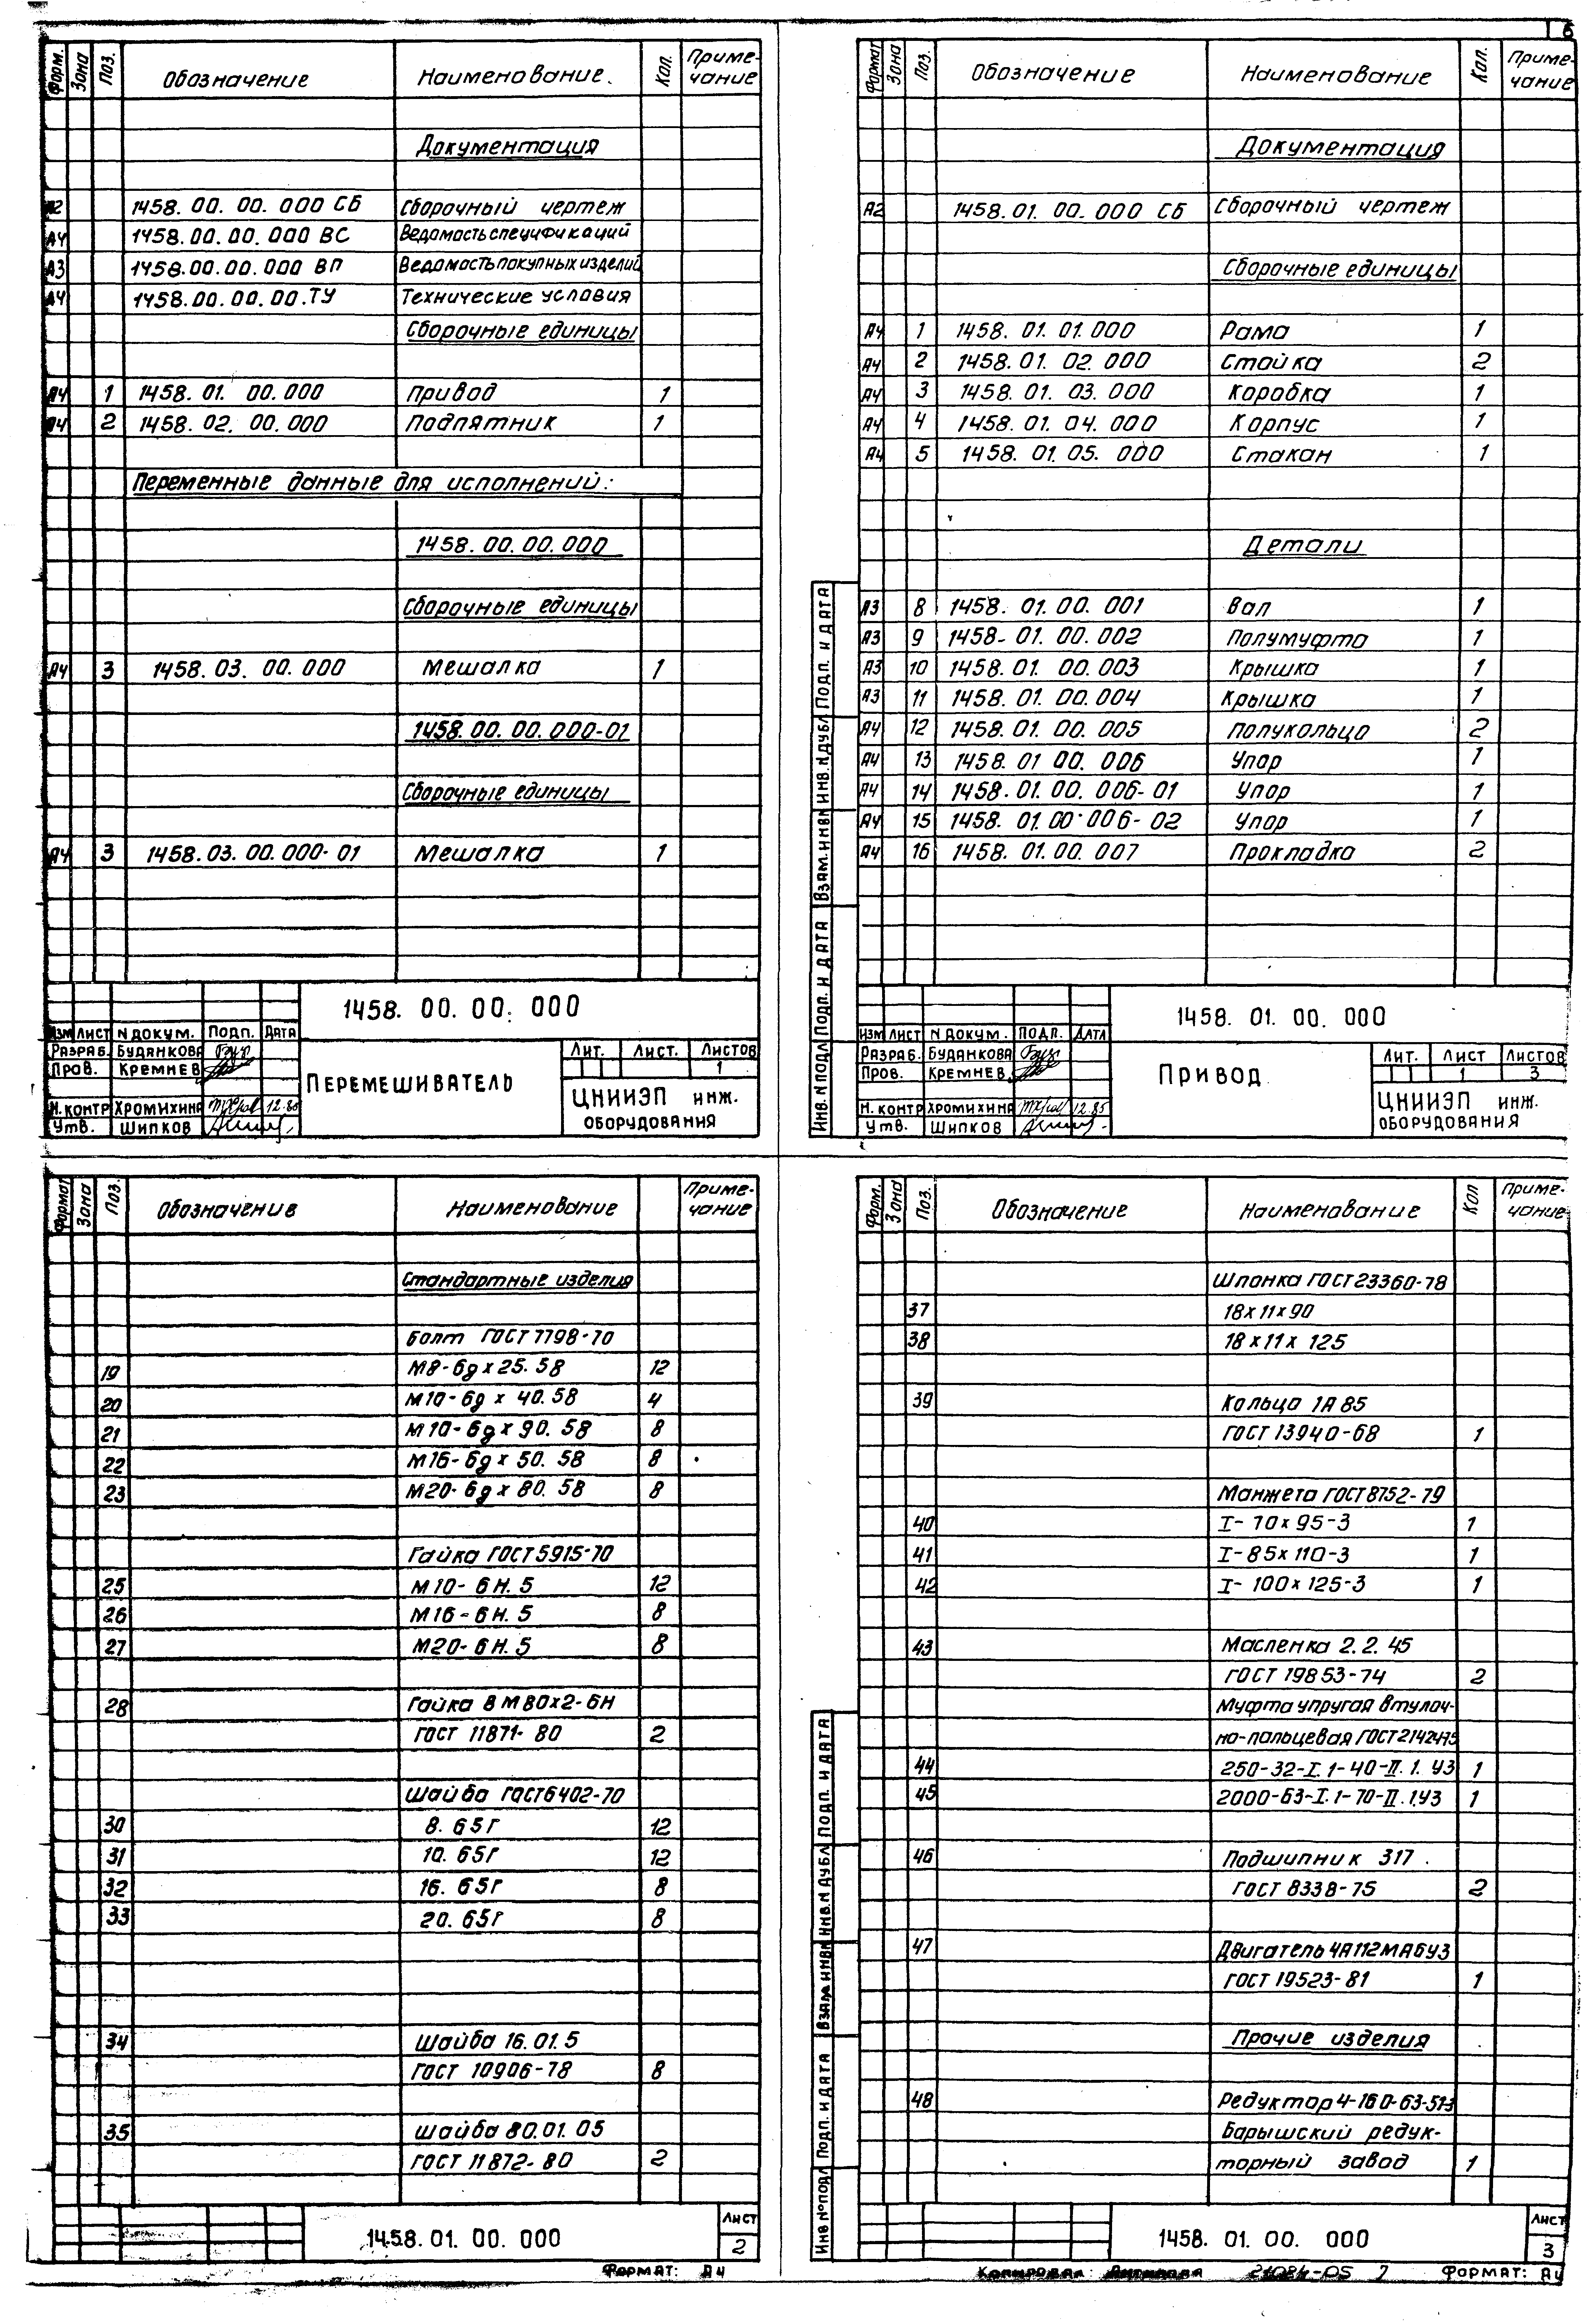 6
Форм. Зона Поз. Обозначение Наименование. Кол. Приме-чание
Документация
А2 1458.00.00.000 СБ Сборочный чертеж
А4 1458.00.00.000 ВС Ведомость спецификаций
А3 1458.00.00.000 ВП Ведомость покупных изделий
А4 1458.00.00.00.ТУ Технические условия
Сборочные единицы
А4 1 1458.01.00.000 Привод 1
А4 2 1458.02.00.000 Подпятник 1
Переменные данные для исполнений:
1458.00.00.000
Сборочные единицы
А4 3 1458.03.00.000 Мешалка 1
1458.00.00.000-01
Сборочные единицы
А4 3 1458.03.00.000-01 Мешалка 1
1458. 00. 00. 000
Изм Лист N докум. Подп. Дата
Разраб. Будянкова
Пров. Кремнев
Н.контр Хромихина 12.85
Утв. Шипков
Перемешиватель
Лит. Лист. Листов
1
ЦНИИЭП инж.
оборудования
Формат Зона Поз. Обозначение Наименование Кол. Приме-чание
Документация
А2 1458.01.00.000 СБ Сборочный чертеж
Сборочные единицы
А4 1 1458.01.01.000 Рама 1
А4 2 1458.01.02.000 Стойка 2
А4 3 1458.01.03.000 Коробка 1
А4 4 1458.01.04.000 Корпус 1
А4 5 1458.01.05.000 Стакан 1
Детали
А3 8 1458.01.00.001 Вал 1
А3 9 1458-01.00.002 Полумуфта 1
А3 10 1458.01.00.003 Крышка 1
А3 11 1458.01.00.004 Крышка 1
А4 12 1458.01.00.005 Полукольцо 2
А4 13 1458.01 00.006 Упор 1
А4 14 1458.01.00.006-01 Упор 1
А4 15 1458.01.00.006-02 Упор 1
А4 16 1458.01.00.007 Прокладка 2
Инв.N подл Подп. и дата Взам.инвN Инв.N дубл Подп. и дата
1458. 01. 00. 000
Изм Лист N докум. Подп. Дата
Разраб. Будянкова
Пров. Кремнев
Н.контр Хромихина 12.85
Утв. Шипков
Привод
Лит. Лист Листов
1 3
ЦНИИЭП инж.
оборудования
Формат Зона Поз. Обозначение Наименование Приме-чание
Стандартные изделия
Болт ГОСТ 7798-70
19 М8-6g х 25.58 12
20 М10-6g х 40.58 4
21 М10-6g х 90.58 8
22 М16-6g х 50.58 8
23 М20-6g х 80.58 8
Гайка ГОСТ 5915-70
25 М10-6Н.5 12
26 М16-6Н.5 8
27 М20-6Н.5 8
28 Гайка 8 М80х2-6Н
ГОСТ 11871-80 2
Шайба ГОСТ 6402-70
30 8. 65Г 12
31 10. 65Г 12
32 16. 65Г 8
33 20. 65Г 8
34 Шайба 16.01.5
ГОСТ 10906-78 8
35 Шайба 80.01.05
ГОСТ 11872-80 2
1458.01. 00. 000
Лист
2
Формат: А4
Форм. Зона Поз. Обозначение Наименование Кол Приме-чание
Шпонка ГОСТ 23360-78
37 18х11х90
38 18х11х125
39 Кольцо 1А 85
ГОСТ 13940-68 1
Манжета ГОСТ 8752-79
40 I-70х95-3 1
41 I-85х110-3 1
42 I-100х125-3 1
43 Масленка 2.2.45
ГОСТ 19853-74 2
Муфта упругая втулоч-
но-пальцевая ГОСТ 21424-75
44 250-32-I.1-40-II.1.У3 1
45 2000-63-I.1-70-II.1.У3 1
46 Подшипник 317.
ГОСТ 8338-75 2
47 Двигатель 4А112МА6У3
ГОСТ 19523-81 1
Прочие изделия
48 Редуктор 4-160-63-51-3
Барышский редук-
торный завод 1
Инв N°подл Подп. и дата Взам инвN Инв.N дубл Подп. и дата
1458. 01. 00. 000
Лист
3
Копировал 21084-05 7 Формат: А4